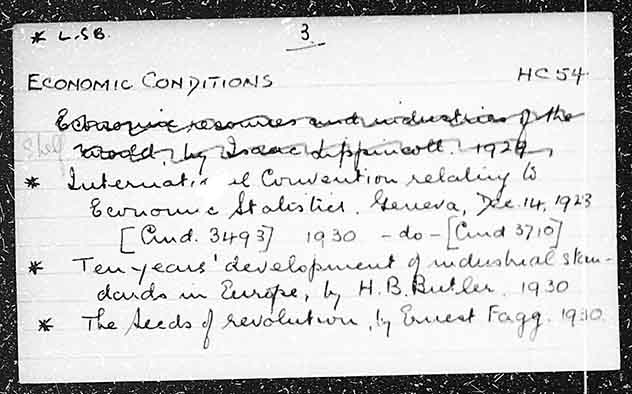 * L.SB. 3.
ECONOMIC CONDITIONS HC 54
Economic resources and industries of the
Shelf World, by Isaac Lippincott. 1929,
* International Convention relating to
Economic Statistics. Geneva, Dec. 14, 1923
[Cmd. 3493] 1930 - do - [Cmd 3710]
* Ten years' development of industrial stan-
dards in Europe, by H.B. Butler. 1930
* The Seeds of revolution, by Ernest Fagg. 1930.